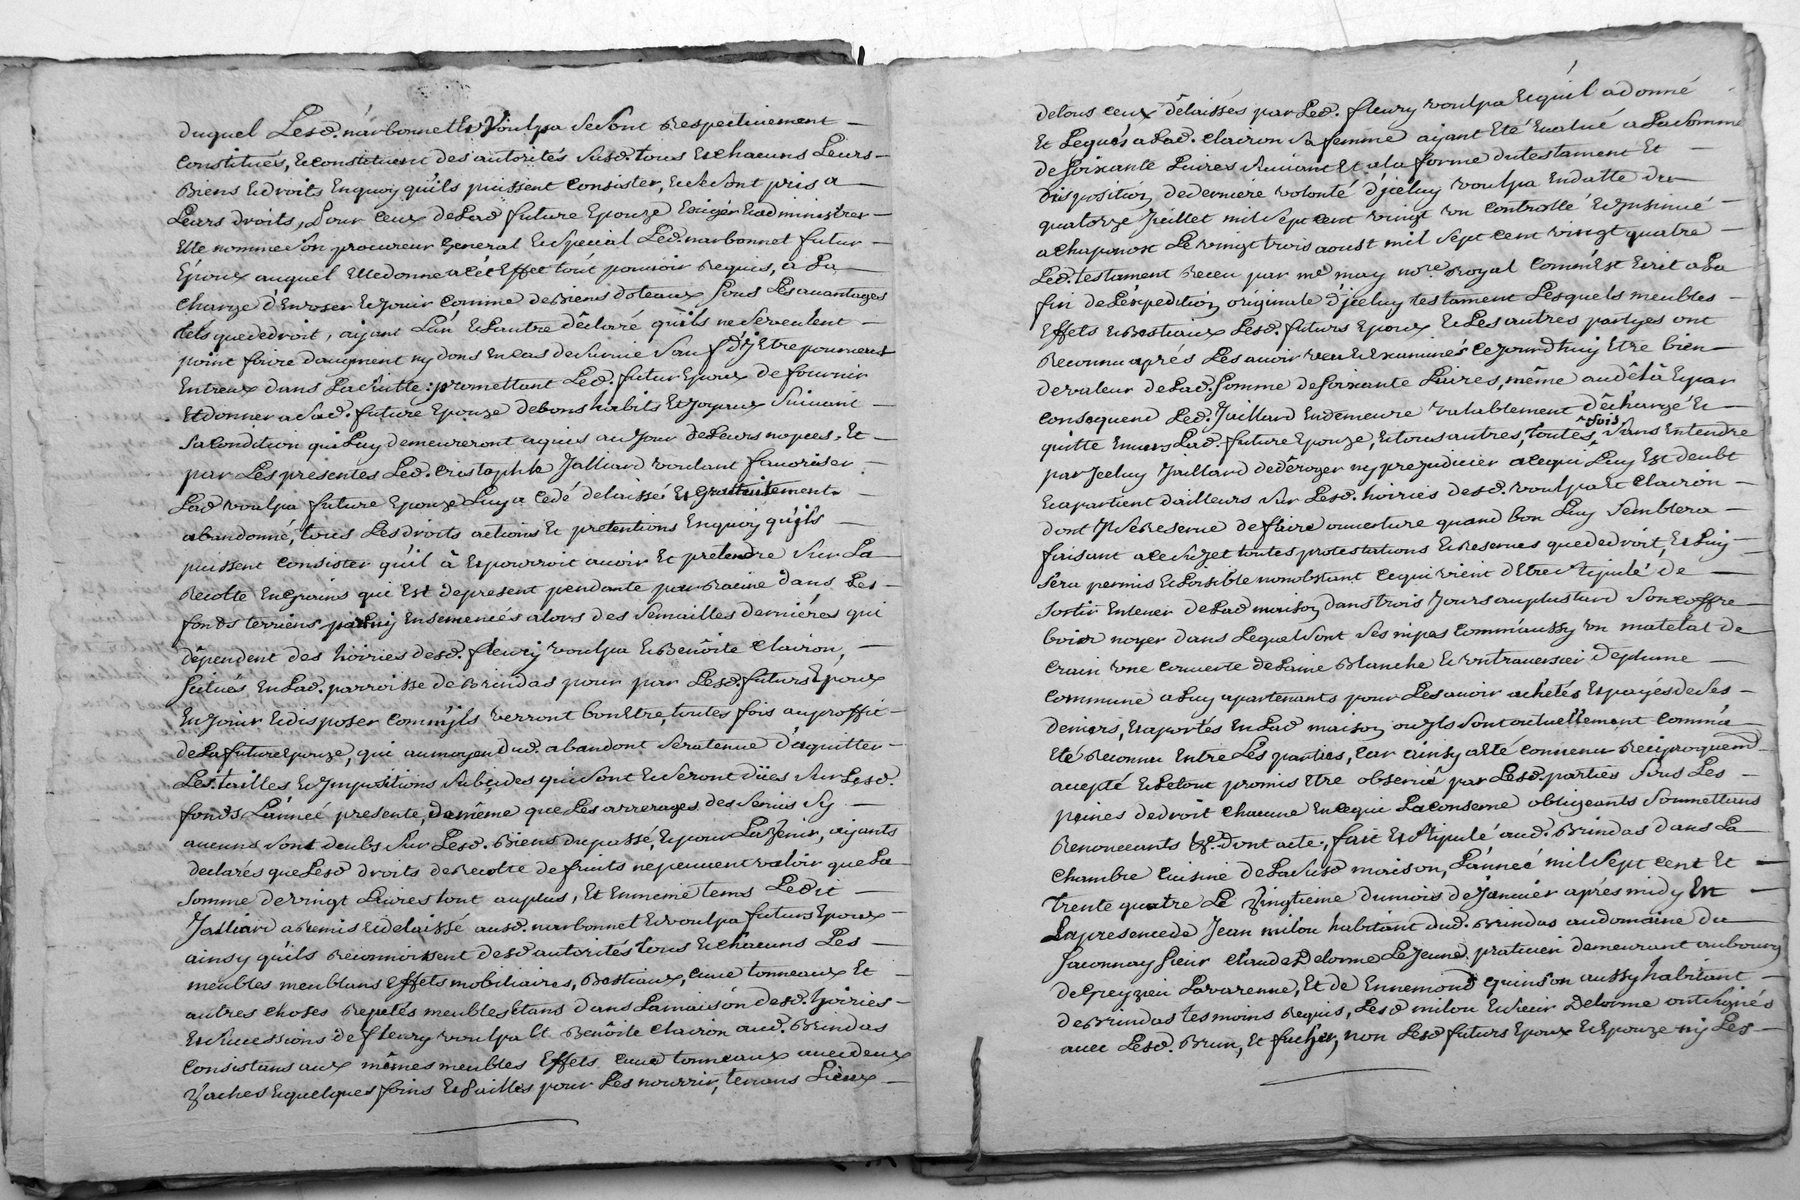 duquel Lesd. narbonnet Et Voulpa se sont Respectivement
Constitués, Et constituent des autorités susd. tous Et chacuns Leurs
Biens Et droits En quoy qu'ils puissent Consister, Et se sont pris a
Leurs droits, pour Ceux de Lad. future Epouze Exiger Et administrer
Elle nomme son procureur general Et special Led. narbonnet futur
Epoux auquel Elle donne a cét Effet tout pouvoir Requis, a La
charge d'En user Et jouir comme de Biens doteaux sous Les avantages
tels que de droit, aijant L'un Et L'autre déclaré qu'ils ne Serveulent
point faire d'augment ny dons En cas de Survie Sauf d'y Etre pourveus
Entreux dans La suitte: promettant Led. futur Epoux de fournir
Et donner a sad. future Epouze de bons habits Et Joyaux Suivant
Sa Condition qui Luy demeureront aquis au jour de Leurs nopces, Et
par Les presentes Led. Cristophle Jalliard voulant favoriser
Lad. voulpa future Epouze Luy a Cedé delaissé Et gratuitement
abandonné, tous Les droits actions Et pretentions En quoy qu'ils
puissent consister qu'il à Et pourroit avoir Et prétendre Sur La
Recolte En grains qui Est de present pendante par Racine dans Les
fonds terriens par Luy Ensemencés alors des Semailles derniéres qui
dépendent des hoiries desd. fleury voulpa Et Benoite Clairon,
Scitués En Lad. parroisse de Brindas pour par Lesd. futurs Epoux
En jouir Et disposer comm'ils verront bon Etre, toutes fois au proffit
de La future Epouze, qui au moyen dud. abandont Sera tenue d'aquitter
Les tailles Et Impositions Subsides qui sont Et seront düës Sur Lesd.
fonds L'année presente, de même que Les arrerages des Servis sy
aucuns sont deubs Sur Lesd. Biens du passé, Et pour L'avenir, aijants
declarés que Lesd. droits de Recolte de fruits ne peuvent valoir que La
Somme de vingt Livres tout au plus, Et En même tems Ledit
Jalliard a Remis Et delaissé ausd. narbonnet Et voulpa futurs Epoux
ainsy qu'ils Reconnoissent desd. autorités tous Et chacuns Les
meubles meublans Effets mobiliaires, Bestiaux, Cuve tonneaux Et
autres choses Reputés meubles Etans dans La maison desd. hoiries
Et Successions de fleury voulpa Et Benoite Clairon aud. Brindas
Consistans aux mêmes meubles Effets Cuve tonneaux avec deux
vaches Et quelques foins Et pailles pour Les nourrir, tenans Lieux
de tous ceux délaissés par Led. fleury voulpa Et qu'il a donné
Et Legués a Lad. Clairon Sa femme aijant Eté Evalué a La Somme
de soixante Livres Suivant Et a la forme du testament Et
Disposition de derniere volonté d'jceluy voulpa En datte du
quatorze Juillet mil Sept cent vingt un Controllé Et Insinué
a Chaponost Le vingt trois aoust mil Sept cent vingt quatre
Led. testament Receu par me. may nore. Royal Comm'Est Ecrit a La
fin de L'Expedition originale d'jceluy testament Lesquels meubles
Effets Et Bestiaux Lesd. futurs Epoux Et Les autres partyes ont
Reconnu aprés Les avoir veu Et Examinés Cejourd'huy Etre bien
de valeur de Lad. Somme de soixante Livres, même audélà Et par
Consequend Led. Jaillard En demeure valablement déchargé Et
quitte Envers Lad. future Epouze, Et tous autres, toutes fois, Sans Entendre
par Jceluy Jaillard de déroger ny prejudicier a Ce qui Luy Est deubt
Et apartient d'ailleurs Sur Lesd. hoiries desd. voulpa Et Clairon
dont Jl se Reserve de faire ouverture quand bon Luy Semblera
faisant a Ce sujet toutes protestations Et Reserves que de droit, Et Luy
Sera permis Et Loisible nonobstant Ce qui vient d'Etre stipulé de
Sortir Enlever de Lad. maison dans trois Jours au plustard Son coffre
bois noyer dans Lequel sont Ses nipes Comm'aussy un matelat de
Crain une couverte de Laine Blanche Et un traversier de plume
Commune a Luy apartenants pour Les avoir achetés Et payés de Ses
deniers, Et aportés En Lad. maison ou Jls sont actuellement Comm'a
Eté Reconnu Entre Les parties, Car ainsy a Eté convenu Reciproquemt.
accepté Et Le tout promis Etre observé par Lesd. parties Sous Les
peines de droit chacune En ce qui La conserne obligeants Soumettans
Renonceants &c. Dont acte, fait Et stipulé aud. Brindas dans La
chambre Cuisine de La susd. maison, L'année mil Sept cent Et
trente quatre Le vingtieme du mois de Janvier aprés midy En
La presence de Jean milou habitant dud. Brindas au domaine du
Jaconnay sieur Claude Delorme Le Jeune praticien demeurant au bourg
de Grezieu Lavarenne, Et de Ennemond quinson aussy habitant
de Brindas tesmoins Requis, Lesd. milou Et sieur Delorme ont signés
avec Lesd. Brun, Et fucher, non Lesd. futurs Epoux Et Epouze ny Les